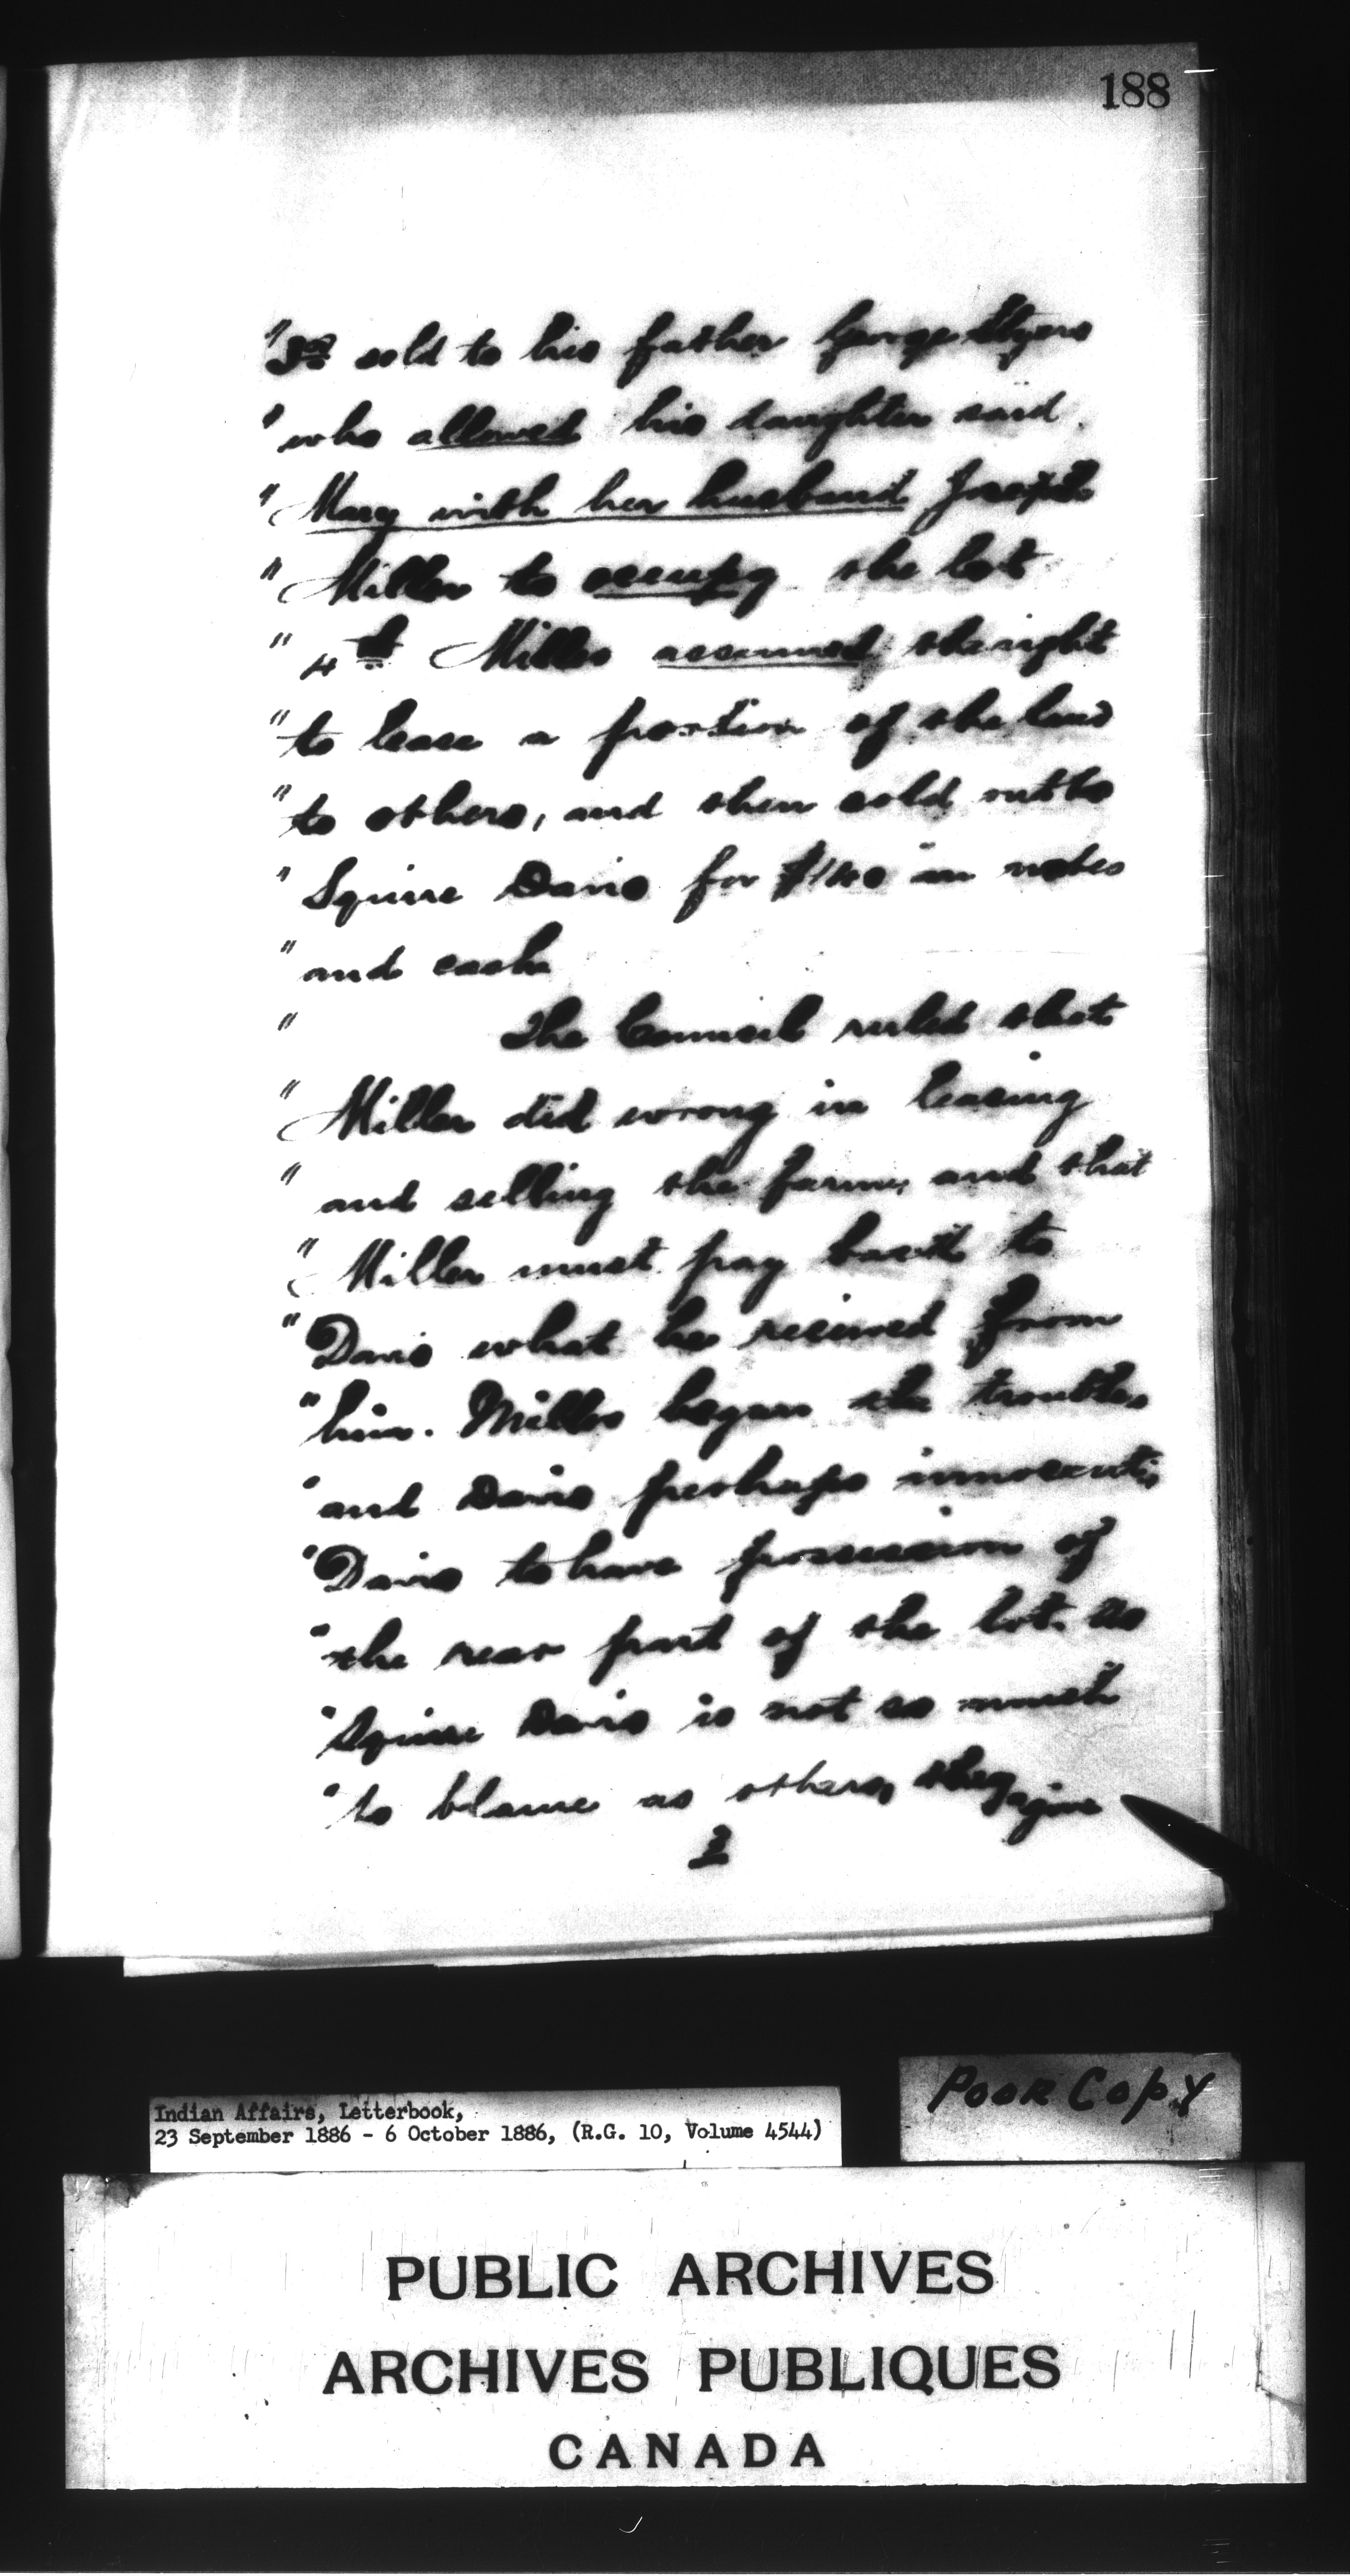 188
"3rd sold to his father George Styers
"who allowed his daughter said
"Mary with her husband Joseph
"Miller to occupy the lot
"4th Miller assumed the right
"to lease a portion of the land
"to others, and then sold out to
"Squire Davis for $140 in notes
"and cash
" The Council ruled that
"Miller did wrong in leasing
"and selling the farm, and that
"Miller must pay back to
"Davis what he received from
"him. Miller began the trouble,
"and Davis perhaps innocently,
"Davis to have possession of
"the rear part of the lot. As
"Squire Davis is not so much
"to blame as others, they give
Poor Copy
Indian Affairs, Letterbook,
23 September 1886 - 6 October 1886, (R.G. 10, Volume 4544)
PUBLIC ARCHIVES
ARCHIVES PUBLIQUES
CANADA